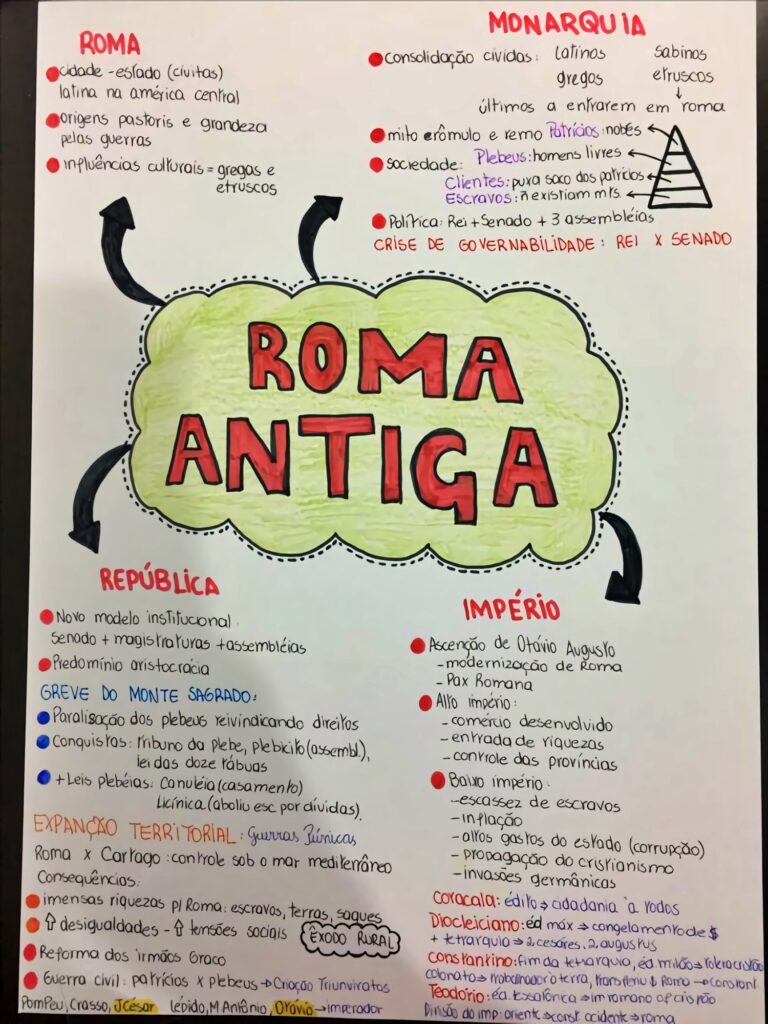 ROMA
cidade-estado (civitas)
latina na américa central
origens pastoris e grandeza
pelas guerras
influências culturais = gregas e
etruscos
MONARQUIA
consolidação cividas: latinos sabinos
gregos etruscos
↓
últimos a entrarem em roma
mito erômulo e remo
sociedade: Patrícios: nobés
Plebeus: homens livres
Clientes: puxa saco dos patrícios
Escravos: ñ existiam mts.
Política: Rei + Senado + 3 assembléias
CRISE DE GOVERNABILIDADE: REI X SENADO
ROMA
ANTIGA
REPÚBLICA
Novo modelo institucional:
Senado + magistraturas + assembléias
Predomínio aristocrácia
GREVE DO MONTE SAGRADO:
Paralisação dos plebeus reivindicando direitos
Conquistas: tribuno da plebe, plebicito (assembl.),
lei das doze tábuas
+ Leis plebéias: Canuléia (casamento)
Licínica (aboliu esc por dívidas).
EXPANÇÃO TERRITORIAL: Guerras Púnicas
Roma x Cartago: controle sob o mar mediterrâneo
Consequências:
imensas riquezas p/ Roma: escravos, terras, saques
⇧ desigualdades - ⇧ tensões sociais ÊXODO RURAL
Reforma dos irmãos Graco
Guerra civil: patrícios x plebeus → Criação Triunviratos
Pompeu, Crasso, J César lébido, M Antônio, Otávio → imperador
IMPÉRIO
Ascenção de Otávio Augusto
- modernização de Roma
- Pax Romana
Alto império:
- comércio desenvolvido
- entrada de riquezas
- controle das províncias
Baixo império:
- escassez de escravos
- inflação
- altos gastos do estado (corrupção)
- propagação do cristianismo
- invasões germânicas
Coracala: édito ⇒ cidadania a todos
Diocleiciano: éd máx ⇒ congelamento de $
+ tetrarquia ⇒ 2 cesáres, 2 augustus
Constantino: fim da tetrarquia, éd. milão ⇒ tolera cristão
colonato ⇒ trabalhador à terra, transferiu Roma → Constant.
Teodório: éd. tessalônca ⇒ im romano oficristão
Divisão do imp: oriente ⇒ const. acidente ⇒ roma